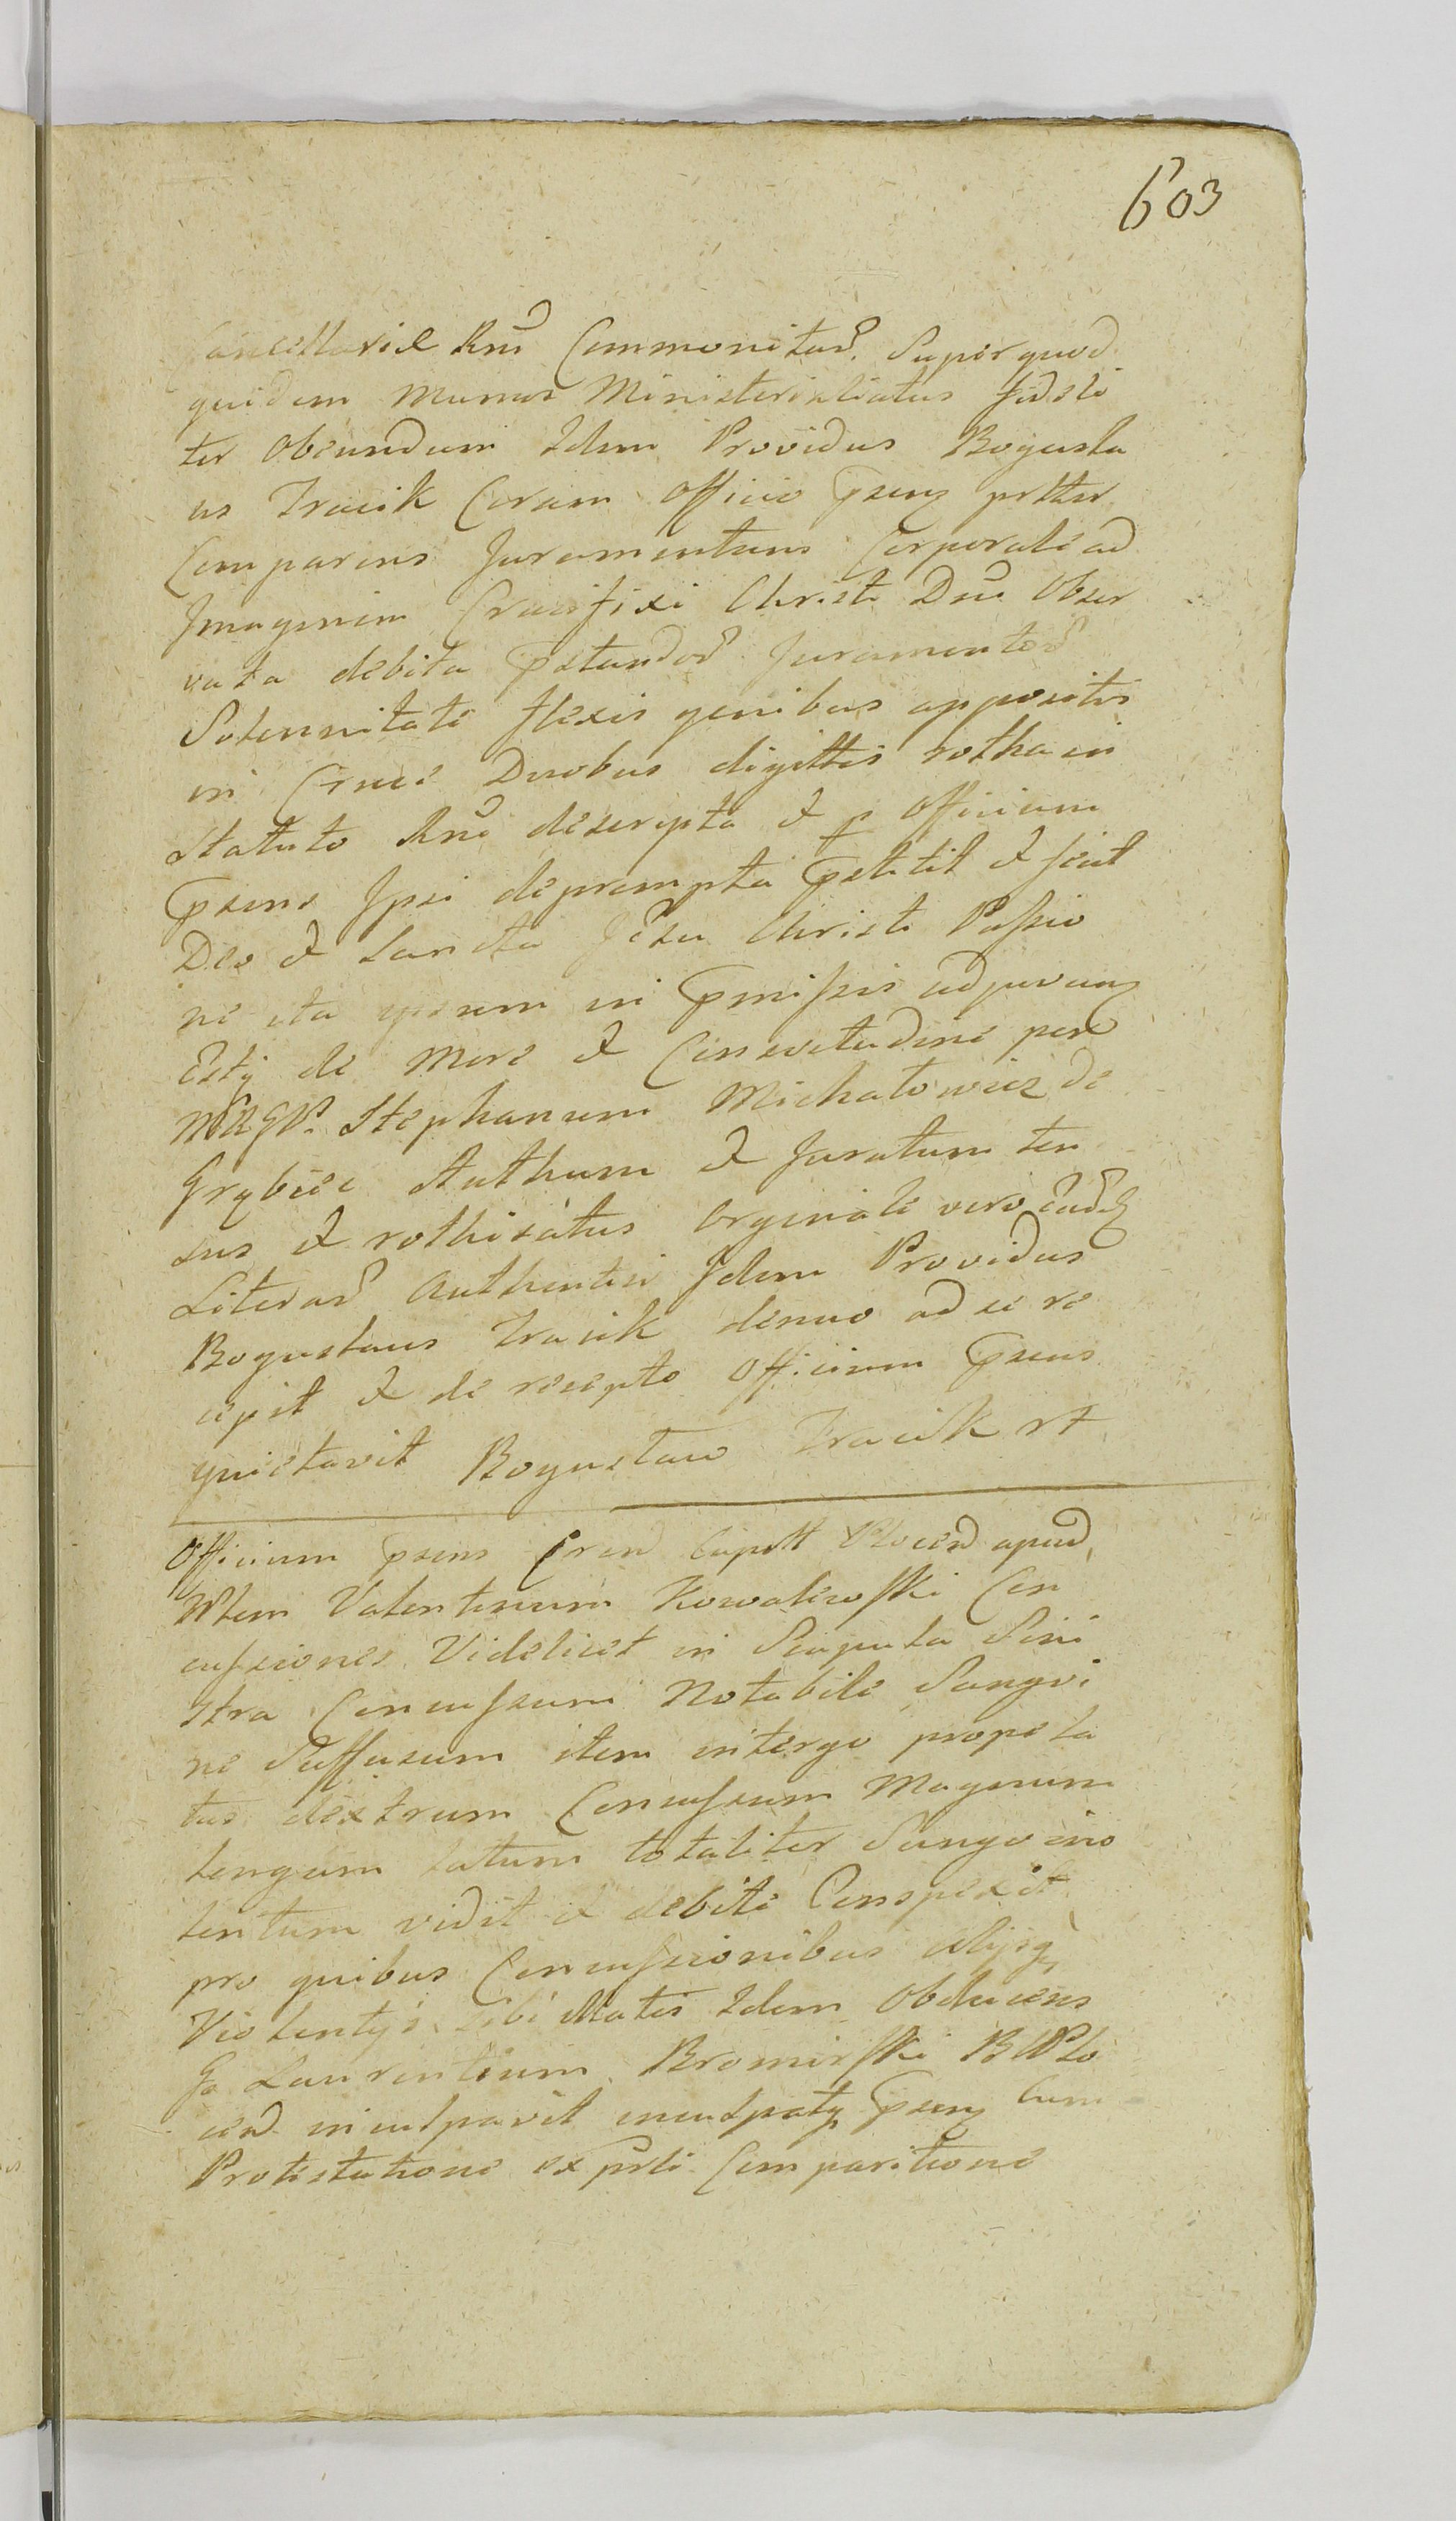 603
Cancellariæ Rni Communitad. Super quod
quidem munus Ministerialiatus fideli
ter obeundum Idem Providus Bogusla
us Tracik Coram officio Psenz prtter
Comparens Juramentum Corporale ad
Imaginem Crucifixi Christi Dni Obser
vata debita Pstandor Juramentor
Solennitate flexis genibus appositis
in Cruce Duobus digittis rotha in
Statuto Rni descripta et p officium
Psens Ipsi deprompta Pstitit et sicut
Deo et Sancta Jesu Christi Passio
ne ita ipsum in Pmissis adjuvanz
Estq de more et Consvetudine per
MAGD. Stephanum Michałowicz de
Grąbiec Authum et Juratum ten
sus et rothisatus Orginale vero eadz
Literar Authentici Idem Providus
Boguslaus Tracik denuo ad se re
cepit et de recepto Officium Psens
quietavit Bogusław Tracik
Officium Psens Capitt Plocen apud
Valentinum Kowalewski Con
cussiones Videlicet in Scapula Sini
stra Concussum Notabile Sangvi
ne Suffusum item in tergo prope la
tus dextrum Concussum Magnum
longum latum totaliter Sangvino
lentum vidit et debite Conspexit
pro quibus Concussionibus alijsq
Violentijs sibi illatis Idem Obducens
G Laurentium Bromirski BPlo
cen inculpavit inculpatq Psenz cum
Protestatione ex prsti Comparitione